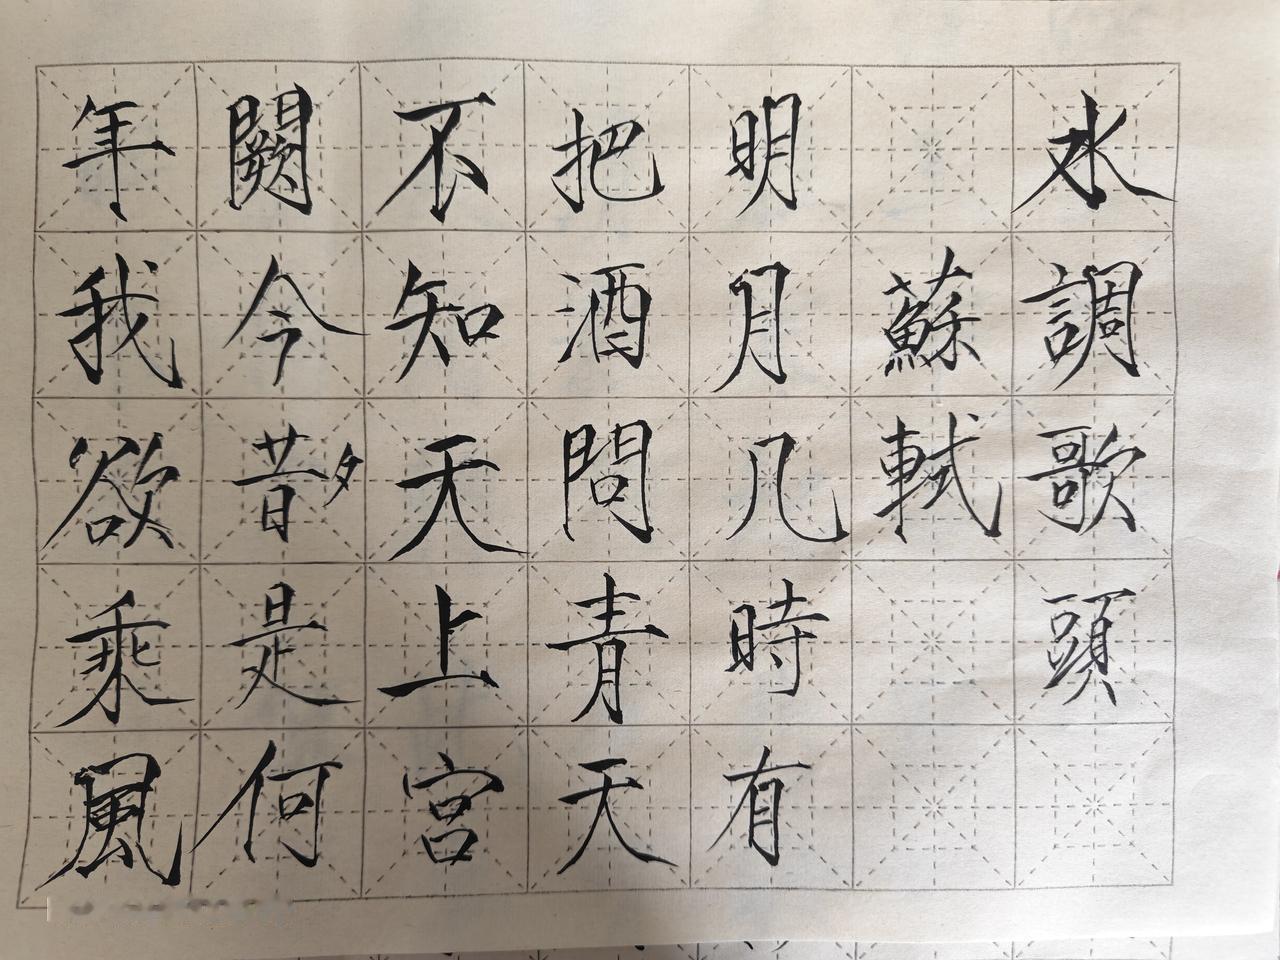 水調歌頭
蘇軾
明月几時有
把酒問青天
不知天上宮
闕今昔夕是何
年我欲乘風